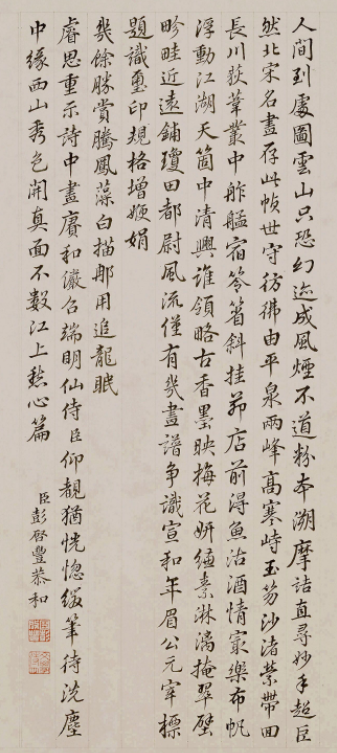 人間到處圖雲山只恐幻迹成風煙不道粉本溯摩詰直尋妙手超臣
然北宋名畫存此幀世守彷彿由平泉兩峰高寒峙玉笏沙渚縈帶回
長川荻葦叢中舴艋宿笭箵斜挂茆店前得魚沽酒情㝡樂布帆
浮動江湖天箇中清興誰領略古香墨映梅花妍縑素淋漓掩翠壁
畛畦近遠鋪瓊田都尉風流僅有幾畫譜争識宣和年眉公元宰標
題識璽印規格增娟
幾餘勝賞騰鳳藻白描郍用追龍眠
睿思重示詩中畫賡和儼召端明仙侍臣仰覩猶恍惚筆待洗塵
中緣西山秀色開真面不數江上愁心篇
臣彭啓豐恭和